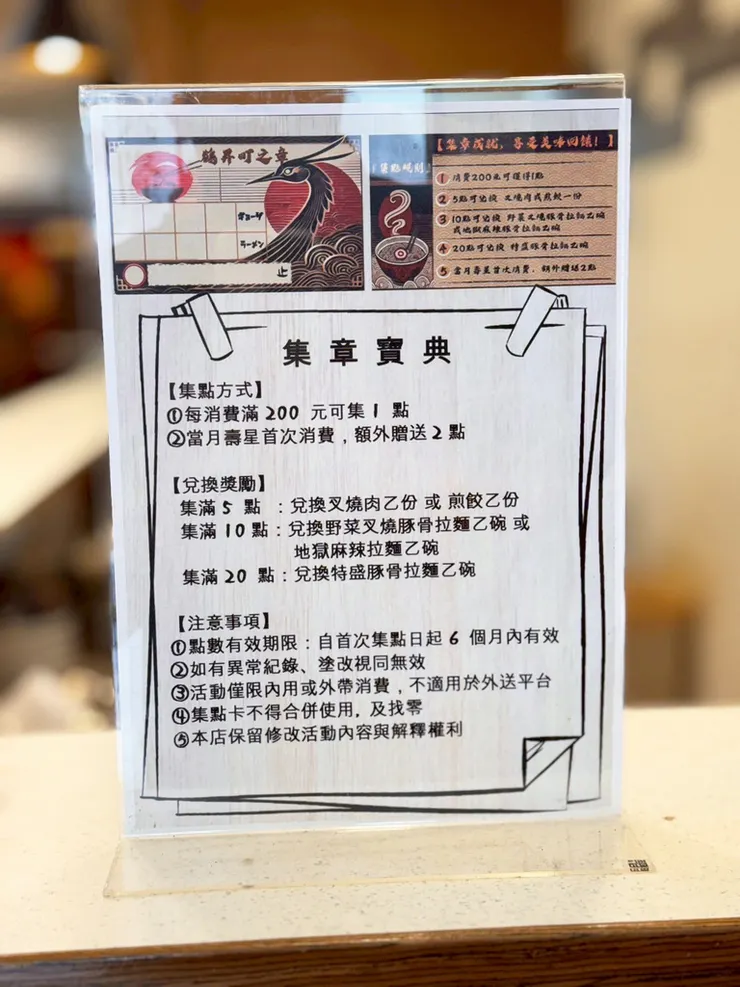 鶴昇町之章
ギョーザ
ラーメン
止
集點規則
1 消費200元可獲得1點
2 5點可兌換 叉燒肉或煎餃一份
3 10點可兌換 野菜叉燒豚骨拉麵乙碗
或地獄麻辣豚骨拉麵乙碗
4 20點可兌換 特盛豚骨拉麵乙碗
5 當月壽星首次消費，額外贈送2點
集章寶典
【集點方式】
①每消費滿 200 元可集 1 點
②當月壽星首次消費，額外贈送 2 點
【兌換獎勵】
集滿 5 點 ：兌換叉燒肉乙份 或 煎餃乙份
集滿 10 點：兌換野菜叉燒豚骨拉麵乙碗 或
地獄麻辣拉麵乙碗
集滿 20 點：兌換特盛豚骨拉麵乙碗
【注意事項】
①點數有效期限：自首次集點日起 6 個月內有效
②如有異常紀錄、塗改視同無效
③活動僅限內用或外帶消費，不適用於外送平台
④集點卡不得合併使用，及找零
⑤本店保留修改活動內容與解釋權利